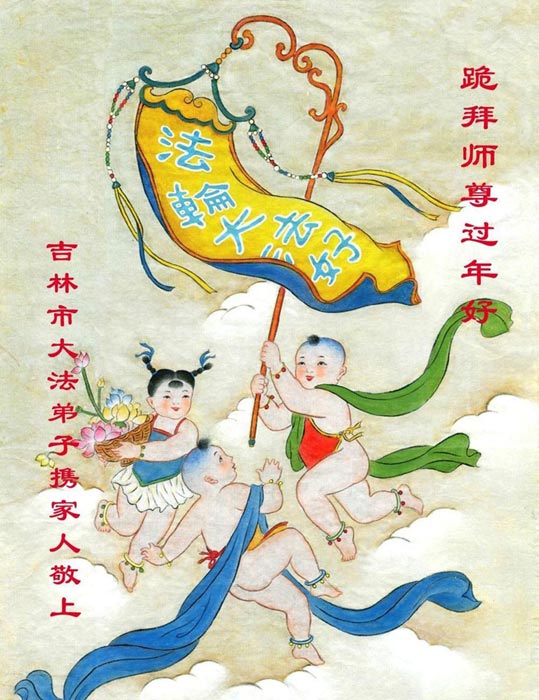 跪拜师尊过年好
法輪大法好
吉林市大法弟子携家人敬上